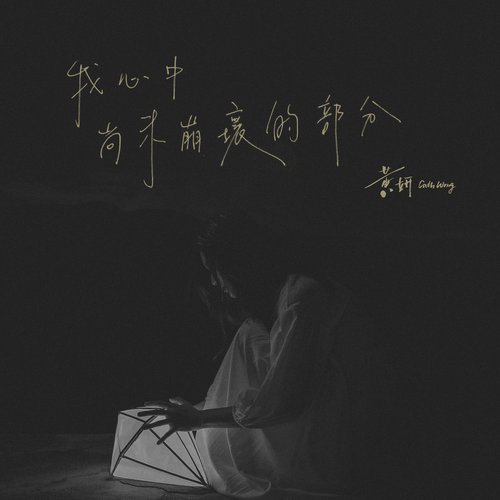 我心中
尚未崩壞的部分
黃妍 Cath Wong